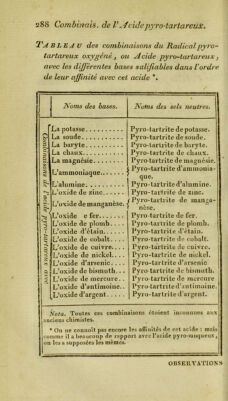 288 Combinais. de l'Acide pyro-tartareux.
TABLEAU des combinaisons du Radical pyro-
tartareux oxygéné, ou Acide pyro-tartareux,
avec les différentes bases salifiables dans l'ordre
de leur affinité avec cet acide *.
Noms des bases. Noms des sels neutres.
Combinaisons de l'acide pyro-tartareux avec
La potasse........... Pyro-tartrite de potasse.
La soude............. Pyro-tartrite de soude.
La baryte............ Pyro-tartrite de baryte.
La chaux............. Pyro-tartrite de chaux.
La magnésie.......... Pyro-tartrite de magnésie.
L'ammoniaque......... Pyro-tartrite d'ammonia-
que.
L'alumine............ Pyro-tartrite d'alumine.
L'oxide de zinc...... Pyro-tartrite de zinc.
L'oxide de manganèse. Pyro-tartrite de manga-
nèse.
L'oxide de fer....... Pyro-tartrite de fer.
L'oxide de plomb..... Pyro-tartrite de plomb.
L'oxide d'étain...... Pyro-tartrite d'étain.
L'oxide de cobalt.... Pyro-tartrite de cobalt.
L'oxide de cuivre.... Pyro-tartrite de cuivre.
L'oxide de nickel.... Pyro-tartrite de nickel.
L'oxide d'arsenic.... Pyro-tartrite d'arsenic
L'oxide de bismuth... Pyro-tartrite de bismuth.
L'oxide de mercure... Pyro-tartrite de mercure.
L'oxide d'antimoine.. Pyro-tartrite d'antimoine.
L'oxide d'argent..... Pyro-tartrite d'argent.
Nota. Toutes ces combinaisons étoient inconnues aux
anciens chimistes.
* On ne connoît pas encore les affinités de cet acide : mais
comme il a beaucoup de rapport avec l'acide pyro-muqueux,
on les a supposées les mêmes.
OBSERVATIONS